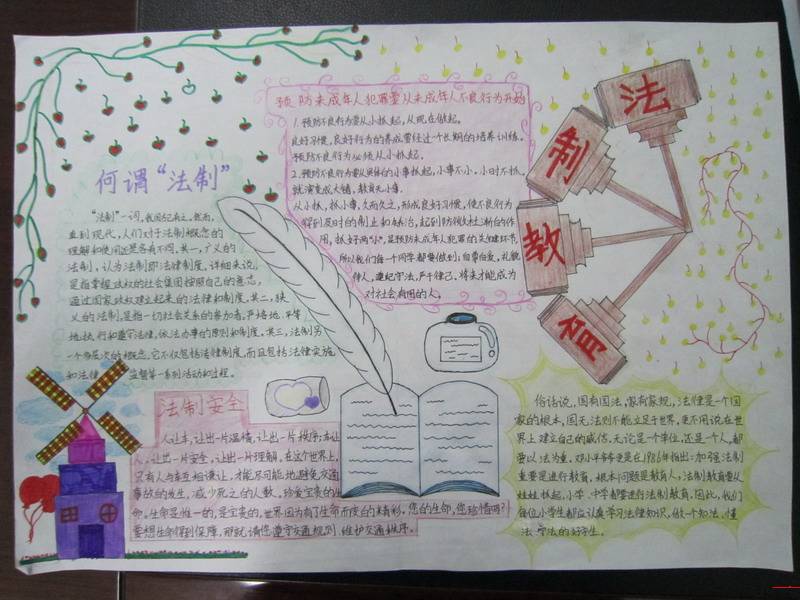 法制教育
何谓“法制”
“法制”一词，我国古已有之。然而，
直到现代，人们对于法制概念的
理解和使用还是各有不同。其一，广义的
法制，认为法制即法律制度。详细来说，
是指掌握政权的社会集团按照自己的意志，
通过国家政权建立起来的法律和制度。其二，狭
义的法制，是指一切社会关系的参加者，严格地、平等
地执行和遵守法律，依法办事的原则和制度。其三，法制另
一个多层次的概念，它不仅包括法律制度，而且包括法律实施
和法律监督等一系列活动和过程。
预防未成年人犯罪要从未成年人不良行为开始
1.预防不良行为要从小抓起，从现在做起。
良好习惯，良好行为的养成要经过个长期的培养训练。
预防不良行为必须从小抓起。
2.预防不良行为要从具体的小事抓起，小事不小，小时不抓，
就演变成大错，教育无小事。
从小抓，抓小事，久而久之，形成良好习惯，使不良行为
得到及时的制止和矫治，起到防微杜渐的作
用，抓好两“小”，是预防未成年人犯罪的关键环节。
所以我们每一个同学都要做到：自尊自爱，礼貌
待人，遵纪守法，严于律己，将来才能成为
对社会有用的人。
法制安全
人让车，让出一片温情，让出一片秩序；车让
人，让出一片安全，让出一片理解，在这个世界上，
只有人与车互相谦让，才能尽可能地避免交通
事故的发生，减少死亡的人数，珍重宝贵的生
命，生命是惟一的，是宝贵的，世界因为有了生命而变的精彩，您的生命，您珍惜吗？
要想生命得到保障，那就请您遵守交通规则 维护交通秩序。
俗话说，国有国法，家有家规，法律是一个国
家的根本，国无法则不能立足于世界，更不用说在世
界上建立自己的威信，无论是个单位，还是个人，都
要以法为重，邓小平爷爷更是在1986年指出：加强法制
重要是进行教育，根本问题是教育人，法制教育要从
娃娃抓起，小学、中学都要进行法制教育，因此，我们
每位小学生都应认真学习法律知识，做一个知法、懂
法、守法的好学生。